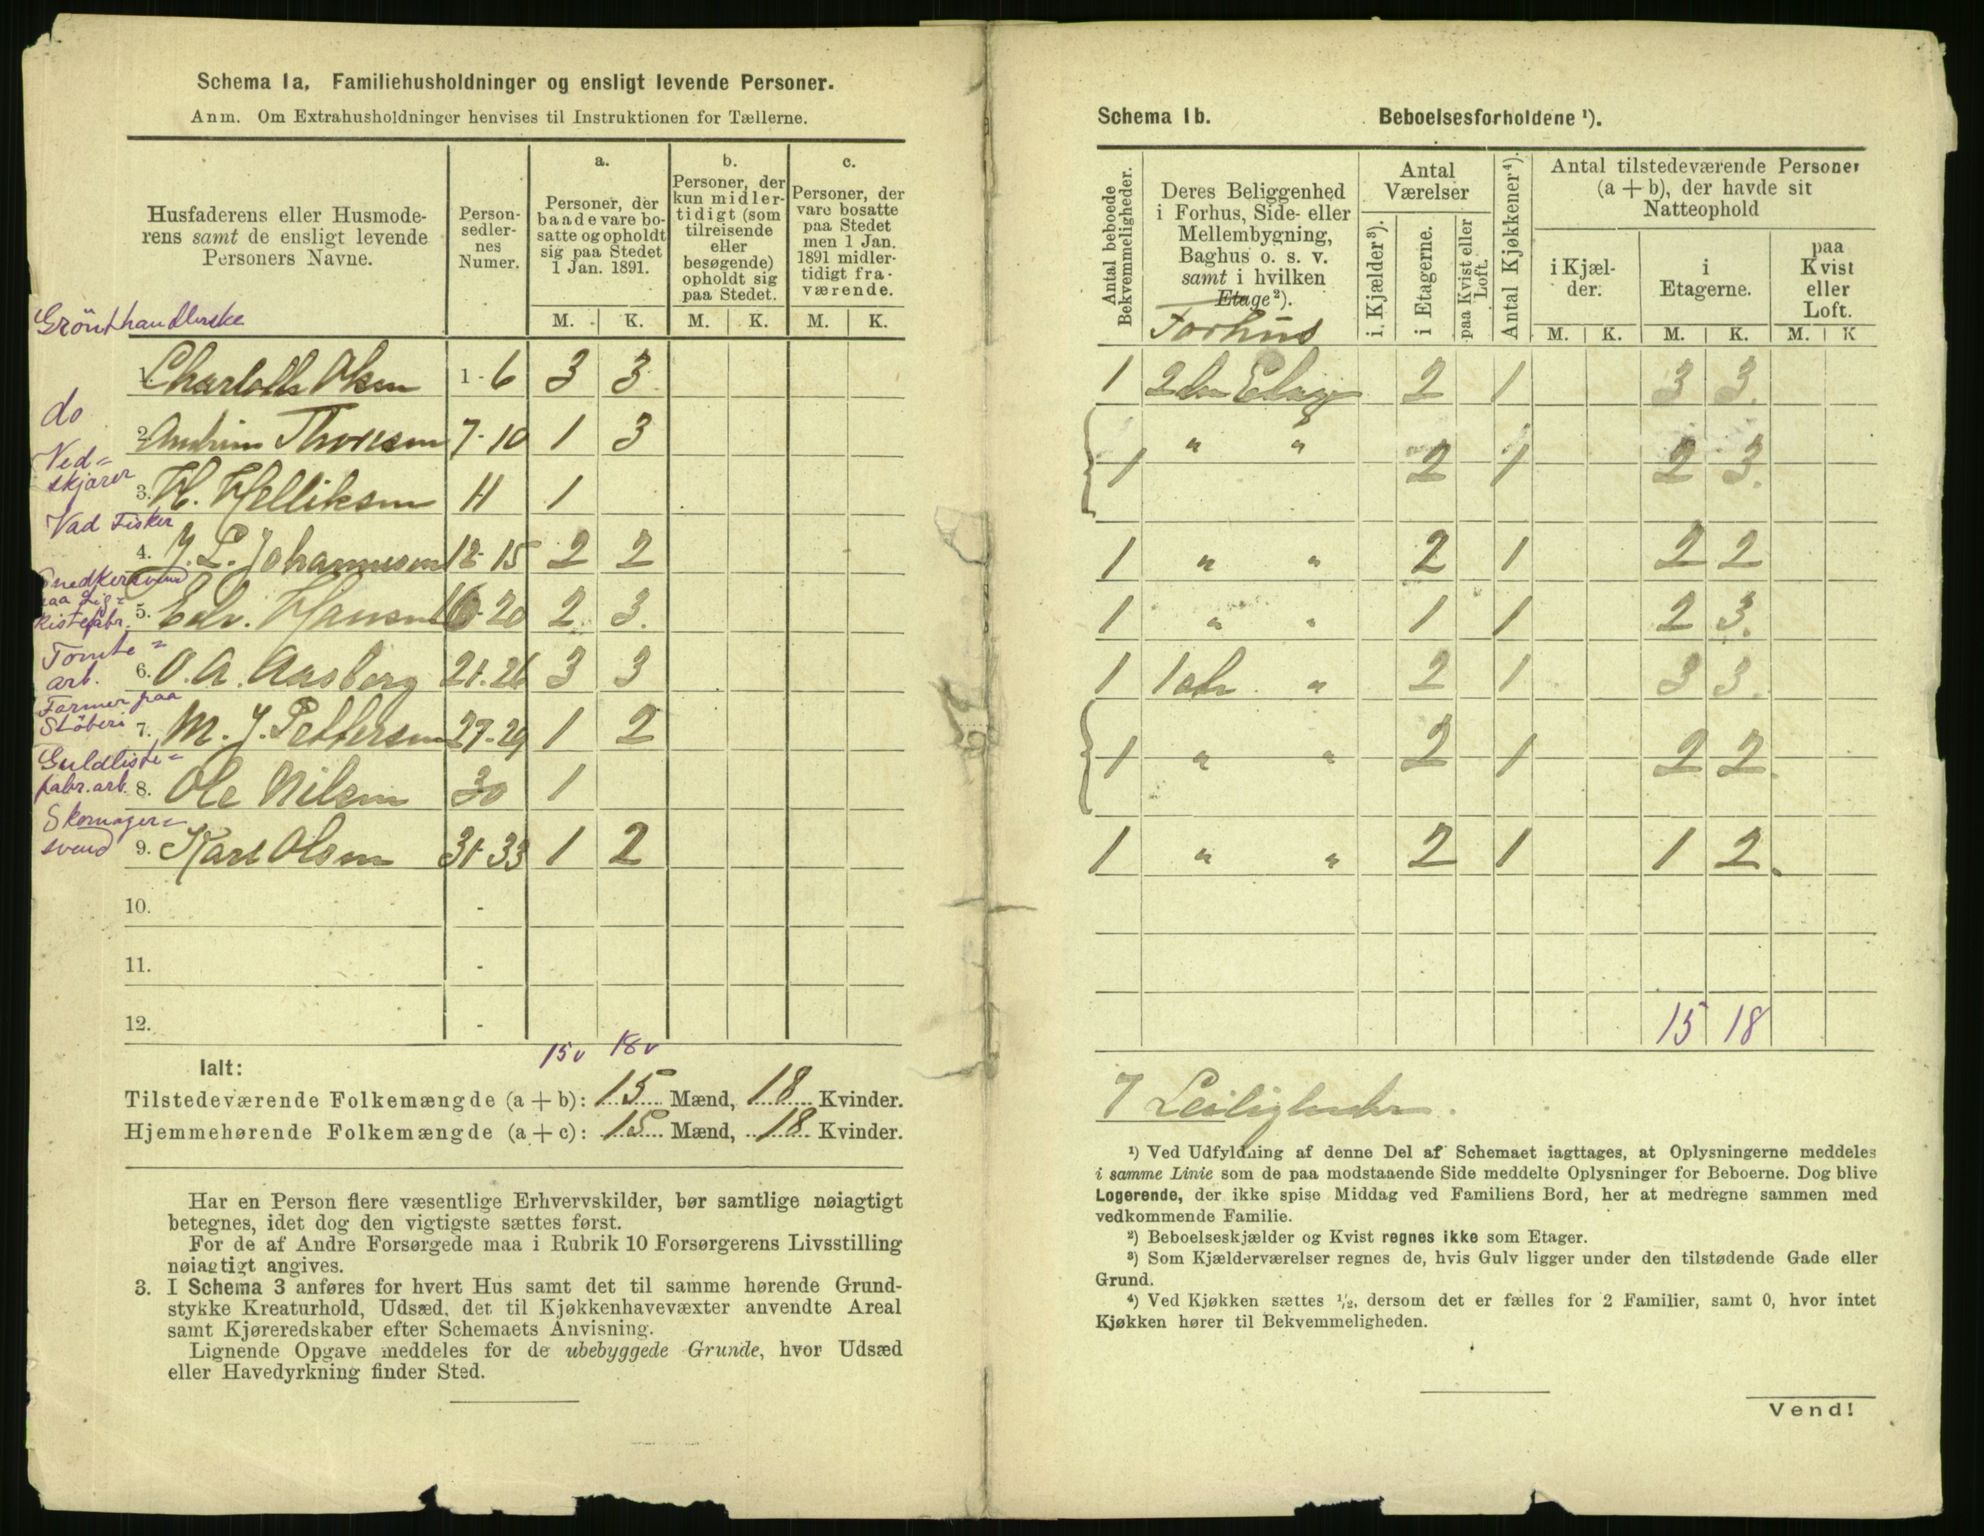 Schema 1a. Familiehusholdninger og ensligt levende Personer.
Anm. Om Extrahusholdninger henvises til Instruktionen for Tællerne.
Husfaderens eller Husmode-
rens samt de ensligt levende
Personers Navne.
Person-
sedler-
nes
Numer.
a.
Personer, der
baade vare bo-
satte og opholdt
sig paa Stedet
1 Jan. 1891.
b.
Personer, der
kun midler-
tidigt (som
tilreisende
eller
besøgende)
opholdt sig
paa Stedet.
c.
Personer, der
vare bosatte
paa Stedet
men 1 Jan.
1891 midler-
tidigt fra-
værende.
M. K. M. K. M. K.
Grönthandlerske
1. Charlotte Olsen 1-6 3 3
do
2. Thoresen 7-10 1 3
Ved=
skjærer
3. H. Helliksen 11 1
Vad Fisker
4. J. L. Johannesen 12-15 2 2
Snedkersvend
paa Lig=
kistefabr.
5. Edv. Hansen 16-20 2 3.
Tomte=
arb.
6. O. A. Aasberg 21-26 3 3
Former paa
Støberi
7. M. J. Pettersen 27-29 1 2
Guldliste=
fabr. arb.
8. Ole Nilsen 30 1
Skomager=
svend
9. Karl Olsen 31-33 1 2
10. -
11. -
12. -
15 v 18 v
Ialt:
Tilstedeværende Folkemængde (a + b): 15 Mænd, 18 Kvinder.
Hjemmehørende Folkemængde (a + c): 15 Mænd, 18 Kvinder.
Har en Person flere væsentlige Erhvervskilder, bør samtlige nøiagtigt
betegnes, idet dog den vigtigste sættes først.
For de af Andre Forsørgede maa i Rubrik 10 Forsørgerens Livsstilling
nøiagtigt angives.
3. I Schema 3 anføres for hvert Hus samt det til samme hørende Grund-
stykke Kreaturhold, Udsæd, det til Kjøkkenhavevæxter anvendte Areal
samt Kjøreredskaber efter Schemaets Anvisning.
Lignende Opgave meddeles for de ubebyggede Grunde, hvor Udsæd
eller Havedyrkning finder Sted.
Schema 1b. Beboelsesforholdene ¹).
Antal beboede
Bekvemmeligheder.
Deres Beliggenhed
i Forhus, Side- eller
Mellembygning,
Baghus o. s. v.
samt i hvilken
Etage ²).
Forhus
Antal
Værelser
i Kjælder ³).
i Etagerne.
paa Kvist eller
Loft.
Antal Kjøkkener ⁴).
Antal tilstedeværende Personer
(a + b), der havde sit
Natteophold
i Kjæl-
der.
i
Etagerne.
paa
Kvist
eller
Loft.
M. K. M. K. M. K
1 2den Etage 2 1 3 3.
" "
1 2 1 2 3.
1 " " 2 1 2 2
1 " " 1 1 2 3.
1 1ste " 2 1 3 3.
1 " " 2 1 2 2.
1 " " 2 1 1 2.
15 18
7 Leiligheder.
¹) Ved Udfyldning af denne Del af Schemaet iagttages, at Oplysningerne meddeles
i samme Linie som de paa modstaaende Side meddelte Oplysninger for Beboerne. Dog blive
Logerende, der ikke spise Middag ved Familiens Bord, her at medregne sammen med
vedkommende Familie.
²) Beboelseskjælder og Kvist regnes ikke som Etager.
³) Som Kjælderværelser regnes de, hvis Gulv ligger under den tilstødende Gade eller
Grund.
⁴) Ved Kjøkken sættes ½, dersom det er fælles for 2 Familier, samt 0, hvor intet
Kjøkken hører til Bekvemmeligheden.
Vend!